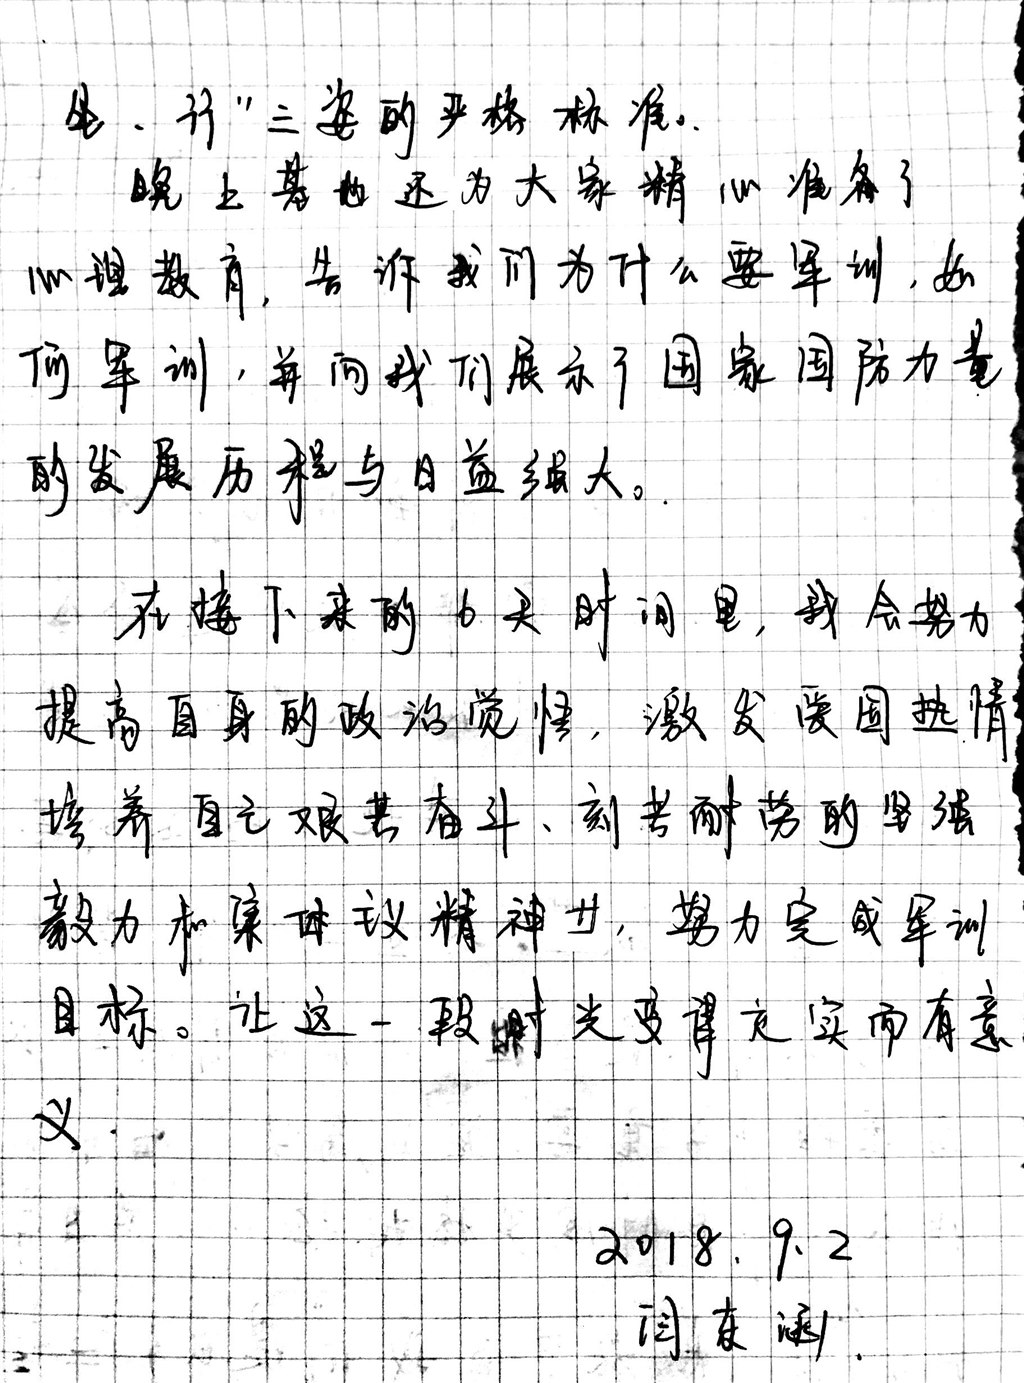 坐、行"三姿的严格标准。
晚上基地还为大家精心准备了
心理教育，告诉我们为什么要军训，如
何军训，并向我们展示了国家国防力量
的发展历程与日益强大。
在接下来的6天时间里，我会努力
提高自身的政治觉悟，激发爱国热情
培养自己艰苦奋斗、刻苦耐劳的坚强
毅力和集体主义精神，努力完成军训
目标。让这一段时光变得充实而有意
义.
2018.9.2
闫